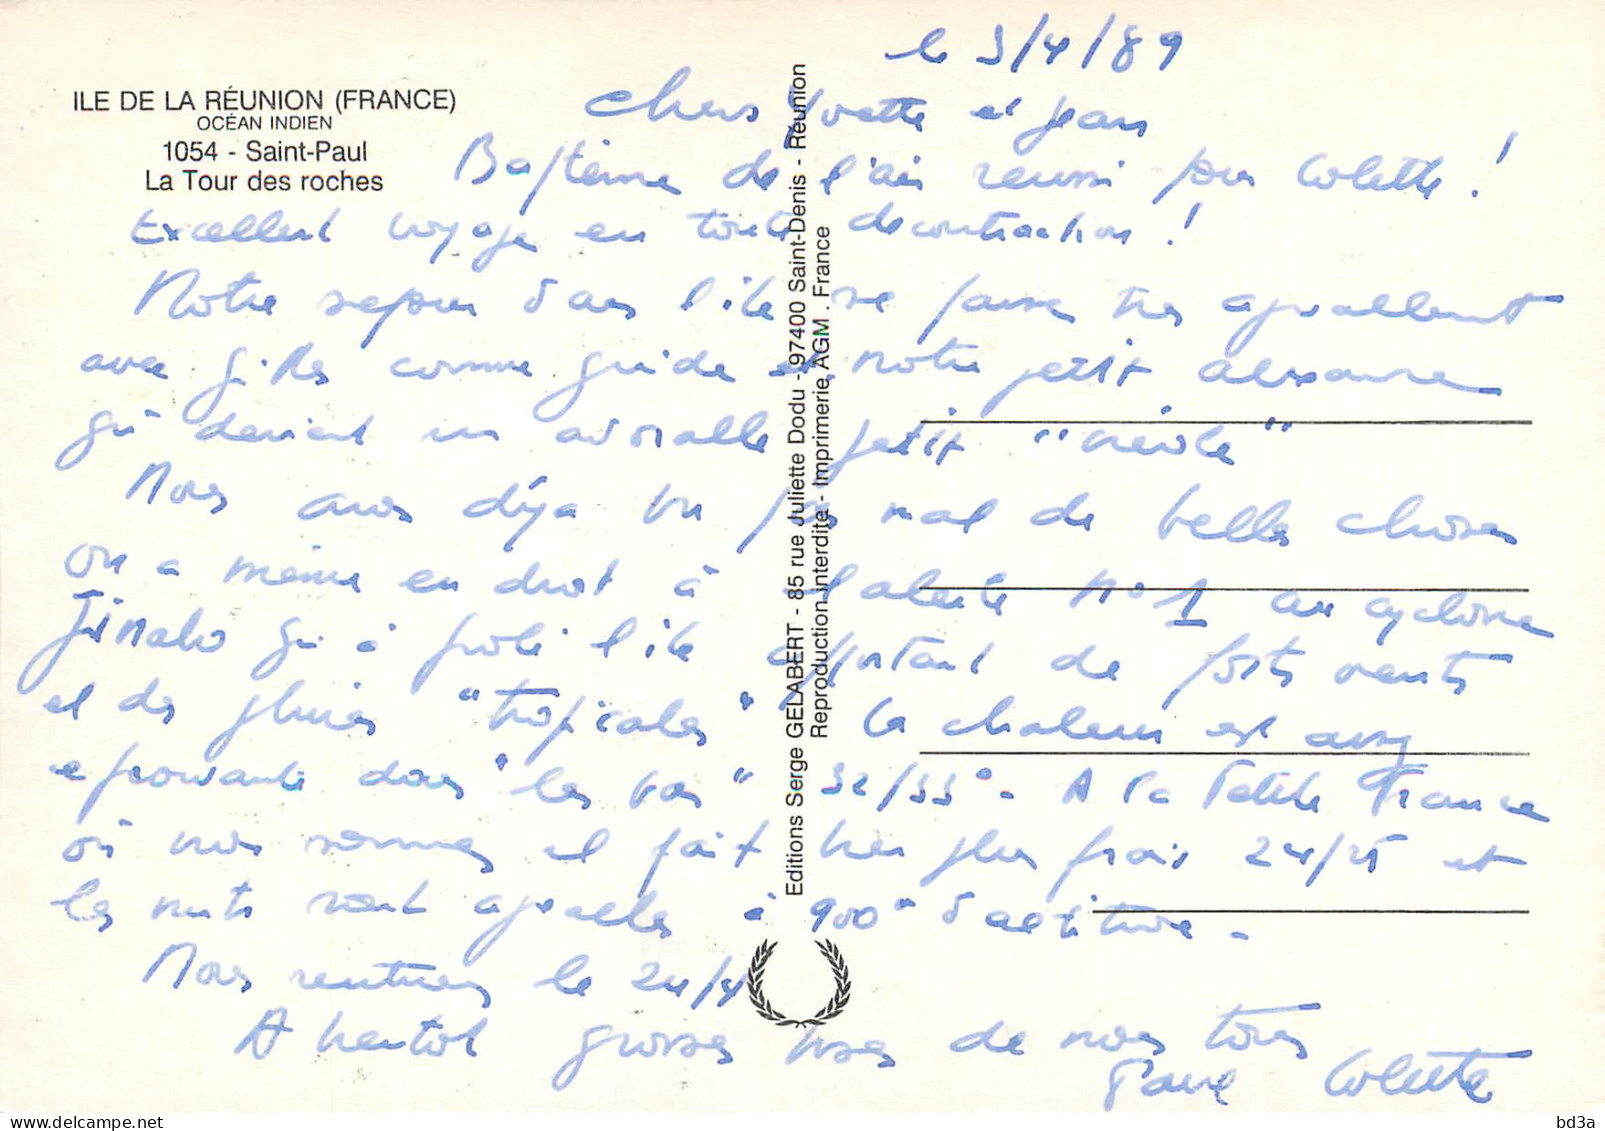 le 3/4/89
ILE DE LA RÉUNION (FRANCE)
OCÉAN INDIEN
1054 - Saint-Paul
La Tour des roches
Chers Yvette et Jean
Baptême de l'air reussi pour Colette !
Excellent voyage en toute decontraction !
Notre sejour dans l'ile se passe très agreablement
avec Gilles comme guide et notre petit Alexandre
qui devient un adorable petit "créole"
Nous avons déja vu pas mal de belles choses
on a même eu droit à l'alerte n° 1 au cyclone
qui a frolé l'ile apportant de forts vents
et des pluies "tropicales" la chaleur est assez
eprouvante dans "les bas" 32/33° - A la Petite France
où nous sommes il fait bien plus frais 24/25 et
les nuits sont agreables à 900m d'altitude -
Nous rentrons le 24/4
A bientot grosses bises de nous tous
Colette
Editions Serge GELABERT - 85 rue Juliette Dodu - 97400 Saint-Denis - Réunion
Reproduction interdite - Imprimerie AGM . France
delcampe.net
bd3a